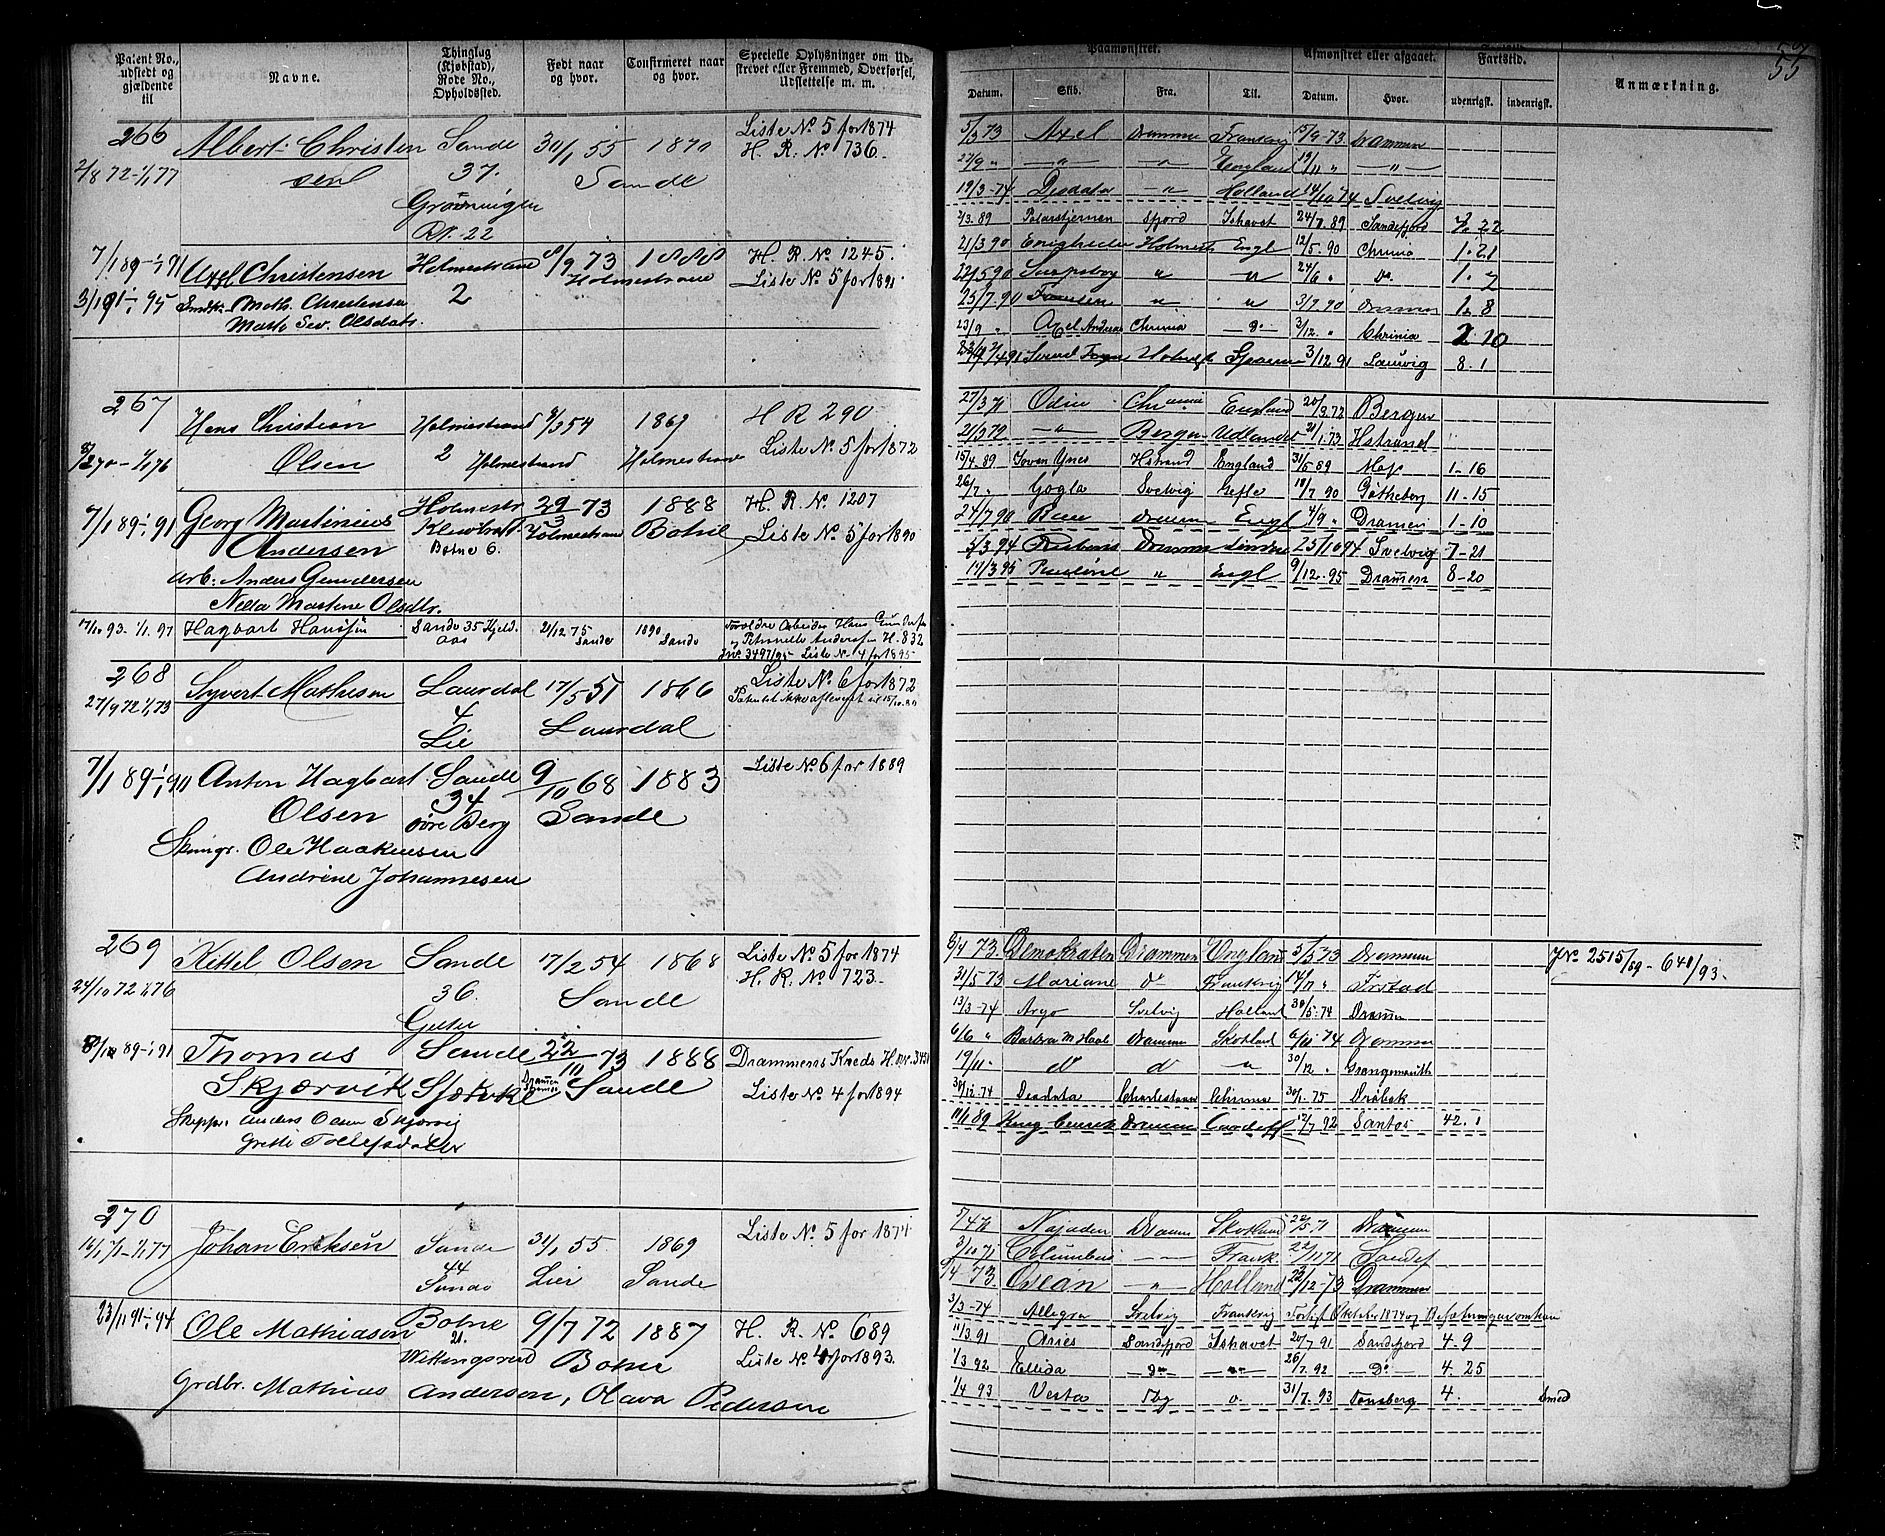 Patent No., udstedt og gjældende til
Navne.
Thinglag (Kjøbstad), Rode No., Opholdssted.
Født naar og hvor.
Confirmeret naar og hvor.
Specielle Oplysninger om Udstrevet eller Fremmed, Overførsel, Udslettelse m. m.
266
Albert Christen Sande 30/1 55 1870 Liste No 5 for 1874
sen 37. Sande H. R. No 736.
2/8 72-1/1 77
Grønningen
Rt. 22
7/1 89-1/1 91 Axel Christensen Holmestrand 8/9 73 1888 H. R. No 1245.
Holmestrand Liste No 5 for 1891
3/1 91-1/1 95 Math. Christensen 2
Olsdatr.
267
Hans Christian Holmestrand 9/3 54 1869 H R 290
Olsen 2 Holmestrand Holmestrand Liste No 5 for 1872
7/1 89-1/1 91 Georg Martinius Holmestr 29/3 73 1888 H. R. No 1207
Andersen Botne 6. Holmestrand Botne Liste No 5 for 1890
Arb. Anders Gundersen
Martine Olsdtr.
17/10 93. 1/1. 97 Hagbart Hansen Sande 35 21/12 75 Sande 1890 Sande Forældre Arbeider Hans
H. 832
Jnr. 3497/95 Liste No 4 for 1895
268
Syvert Mathisen Laurdal 17/5 51 1866 Liste No 6 for 1872
27/9 72 1/1 73
4
Lie Laurdal
7/1 89-1/1 90 Anton Hagbart Sande 9/10 68 1883 Liste No 6 for 1889
Olsen 34 Sande
øvre Berg
Ole Haakensen
Andrine Johannesen
269
Kittel Olsen Sande 17/2 54 1868 Liste No 5 for 1874
24/10 72 1/1 76 36. Sande H. R. No 723.
89-1/1 91 Thomas Sande 22/10 73 1888 Drammens Kreds
Skjærvik Sande Liste No 4 for 1894
Skipper Anders Olsen Skjærvig
Grethe Tollefsdatter
270
Johan Eriksen Sande 31/1 55. 1869 Liste No 5 for 1874
44
Sande Lier Sande
23/11 91-1/1 94 Ole Mathiasen Botne 9/7 72 1887 H. R. No 689
21. Botne Liste No 4 for 1893.
Grdbr. Mathias Andersen, Olava Pedersen
55
Paamønstret.
Afmønstret eller afgaaet.
Fartstid.
Anmærkning.
Datum. Skib. Fra. Til. Datum. Hvor. udenrigst. indenrigst.
5/3 73 Axel Drammen Frankrig 15/9 73 Drammen
27/9 " —"— —"— England 19/11 " —"—
19/3-74 Deodata —"— Holland 14/10 74 Svelvig
2/3. 89 Polarstjernen Sfjord Ishavet 24/7. 89 Sandefjord 22
21/3 90 Holmestr Engl 12/5. 90 Chrnia 1. 21
22/5 90 Sarpsborg " " 24/6 " Do 1. 7
25/7. 90 " " 3/9. 90 Drammen 1. 8
23/9 " Axel Andreas Chrnia —do— 3/12. " Chrnia 2. 10
3/12 91 Laurvig 8. 1
27/3 71 Odin Chrania England 20/3 72 Bergen
21/3 72 —"— Bergen Udlandet 21/1. 73 Hstrand
15/4. 89 Hstrand England 31/5 89 1- 16
26/7 " Gogla Svelvig Gefle 19/7 90 Gøtheborg 11. 15
24/7 90 Dramm Engl 4/9 " Dramen 1- 10
5/3. 94 Drammen 25/10 94 Svelvig 7- 21
14/3 95 Pauline " Engl 9/12. 95 Dramen 8- 20
5/4 73 Demokraten Drammen England 3/5 73 Drammen JNo 2515/89 - 648/93.
31/5 73 Mariane do Frankrig
13/3-74 Argo Svelvig Holland 30/5. 74 Dramen
6/6 " Barbra M Haal Dramm Skotland 6/11. 74 Drammen
19/11. do do " 30/12 " Grangemouth
30/12. 74 Deodata Charlestown Chrania 30/1. 75 Drøbak
11/1 89 King Cenric Drammen Cardiff 12/7 92 Santos 42. 1
7/4 71 Najaden Dramm Skotland 22/5. 71 Drammen
3/10 71 Columbus —"— Frank. 22/11 71 Sandef
9/4 73 Ocean —"— Holland 23/12-73 Drammen
3/3-74 Allegra Svelvig Frankrig Forlist Oktober 1874 og Besætningen omkom
11/3 91 Aries Sandfjord Ishavet 20/7 91 Sandfjord 4. 9
1/3 92 Ellida —Do— —"— 26/7. 92 —Do— 4. 25
1/4 93 Vesta Tbg o. 31/7. 93 Tønsberg 4. Smed